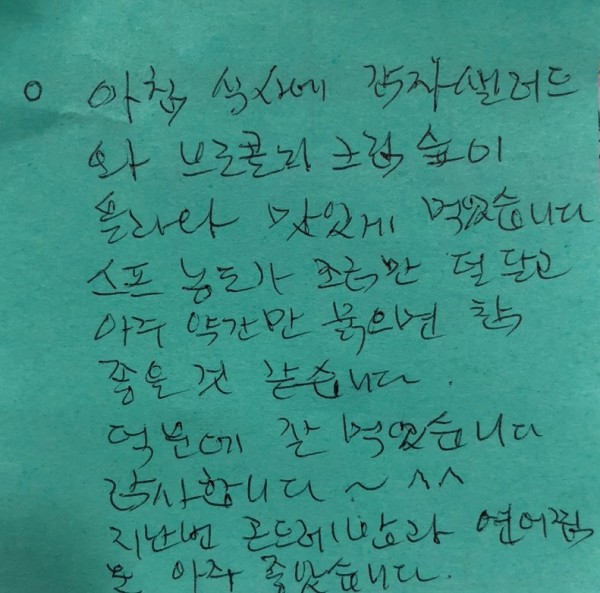 아침 식사에 감자샐러드
와 브로콜리 크림 숲이
올라와 맛있게 먹었습니다
스프 농도가 조금만 덜 달고
아주 약간만 묽으면 참
좋을 것 같습니다.
덕분에 잘 먹었습니다
감사합니다 ~ ^^
지난번 곤드레밥과 연어찜
도 아주 좋았습니다.